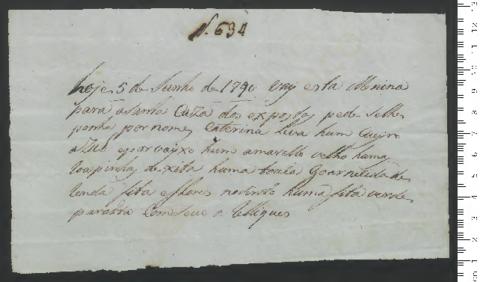 N. 634
hoje 5 de Junho de 1790 vay esta Menina
para a Santa Caza dos expostos pede se lhe
ponha por nome Caterina leva hum Cueyro
azul e por bayxo hum amarello velho huma
de xita huma toalha Goarnecida de
Renda fita e flores no huma fita verde
para